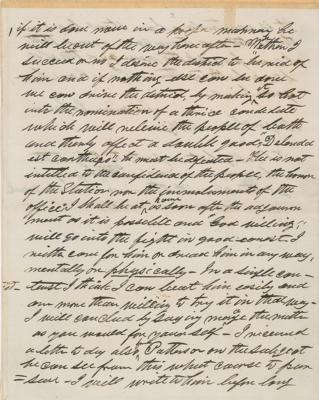 if it is done now in a proper manner, he
will be out of the way hereafter – Whether I
succeed or no I desire the district to be rid of
him and if nothing else can be done
we can drive the district, by making
into the nomination of a third candidate
which will relieve the people of both
and thereby effect a double good Delenda
est Carthago he must be defeated – He is not
entitled to the confidence of the people, the honor
of the Station nor the emoluments of the
office. I shall be at home as soon after the adjourn
ment as it is possible and God willing,
will go into the fight in good earnest. I
neither care for him or dread him in any way,
mentally or physically – In a single con-
test I think I can beat him easily and
am more than willing to try it in that way –
I will conclude by saying manage the matter
as you would for yourself – I received
a letter to day also Patterson on the subject
he can see from this what course to pur
=sue – I will write to him before long